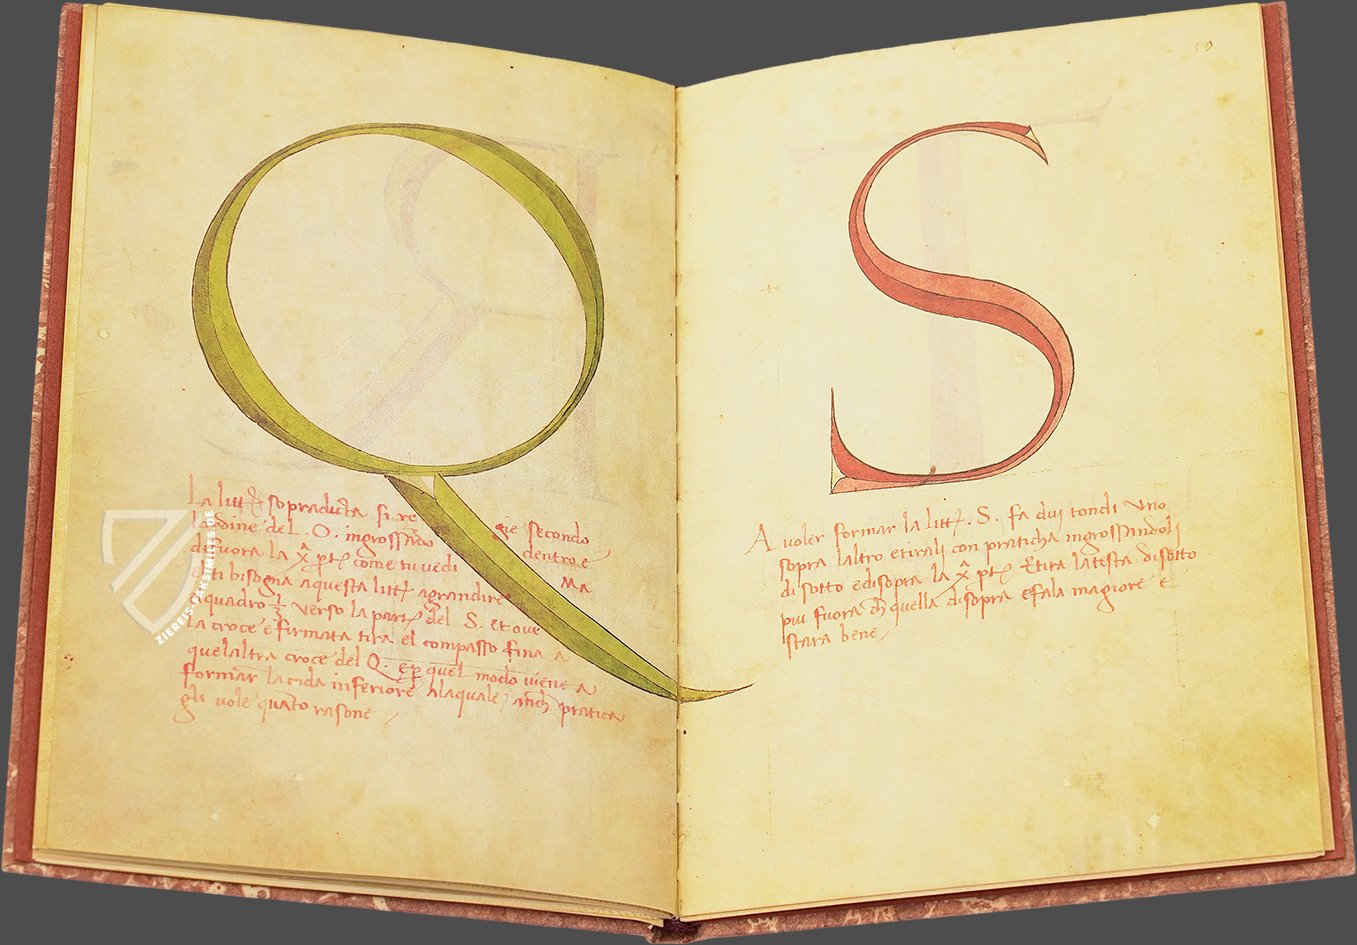 Q
La litt͞ sopradicta si re gie secondo
lordine del .O. ingrossando dentro e
di fuora la x^a pt͞e come tu vedi Ma
e ti bisogna aquesta litt͞ agrandire
e quadro 1/3 verso la part͞e del S. et ove
La croce e firmata tira el compasso fina a
quelaltra croce del Q. e p quel modo viene a
formar la cida inferiore Alaquale pratica
gli vole quāto rasone
ZIEREIS-FAKSIMILES.DE
10
S
A voler formar la litt͞. S. fa duj tondi Uno
sopra laltro e tirali con praticha ingrossandoli
di sotto e disopra la x^a pt͞e Et tira la testa disotto
piu fuora ch̄ quella disopra e fala magiore e
stara bene